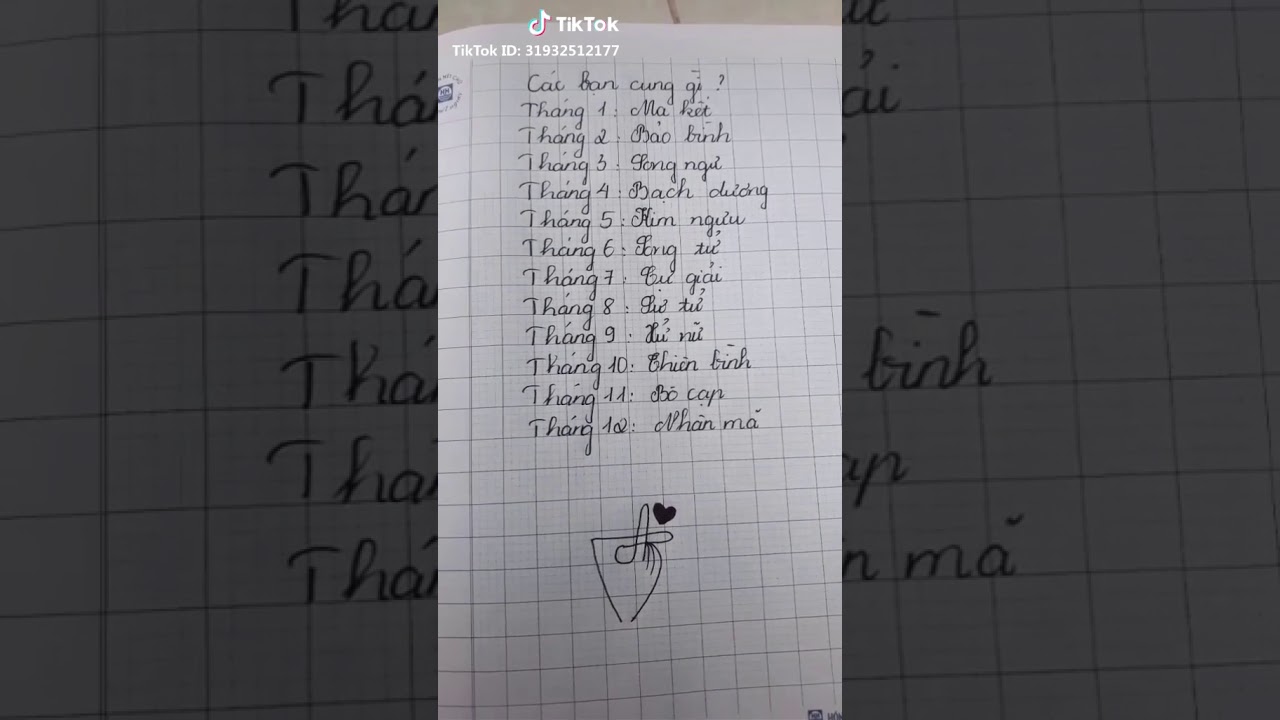 TikTok
TikTok ID: 31932512177
Các bạn cung gì ?
Tháng 1: Ma kết
Tháng 2: Bảo bình
Tháng 3: Song ngư
Tháng 4: Bạch dương
Tháng 5: Kim ngưu
Tháng 6: Song tử
Tháng 7: Cự giải
Tháng 8: Sư tử
Tháng 9: Xử nữ
Tháng 10: Thiên bình
Tháng 11: Bò cạp
Tháng 12: Nhân mã